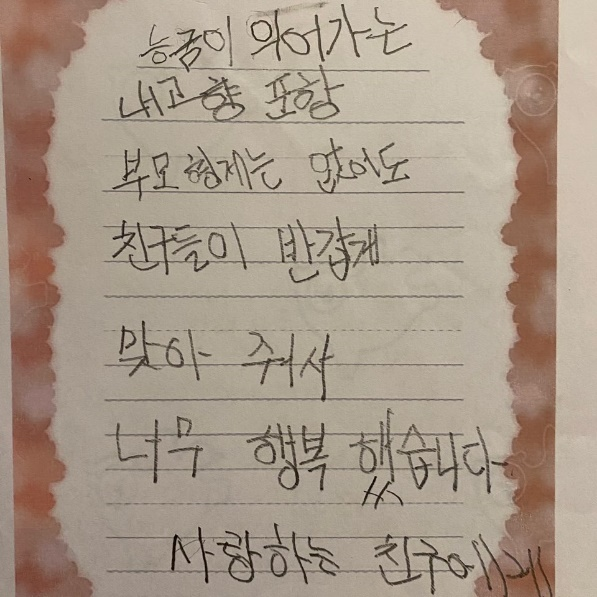 능금이 익어가는
내고향 포항
부모형제는 없어도
친구들이 반갑게
맞아 줘사
너무 행복했습니다
사랑하는 친구에게